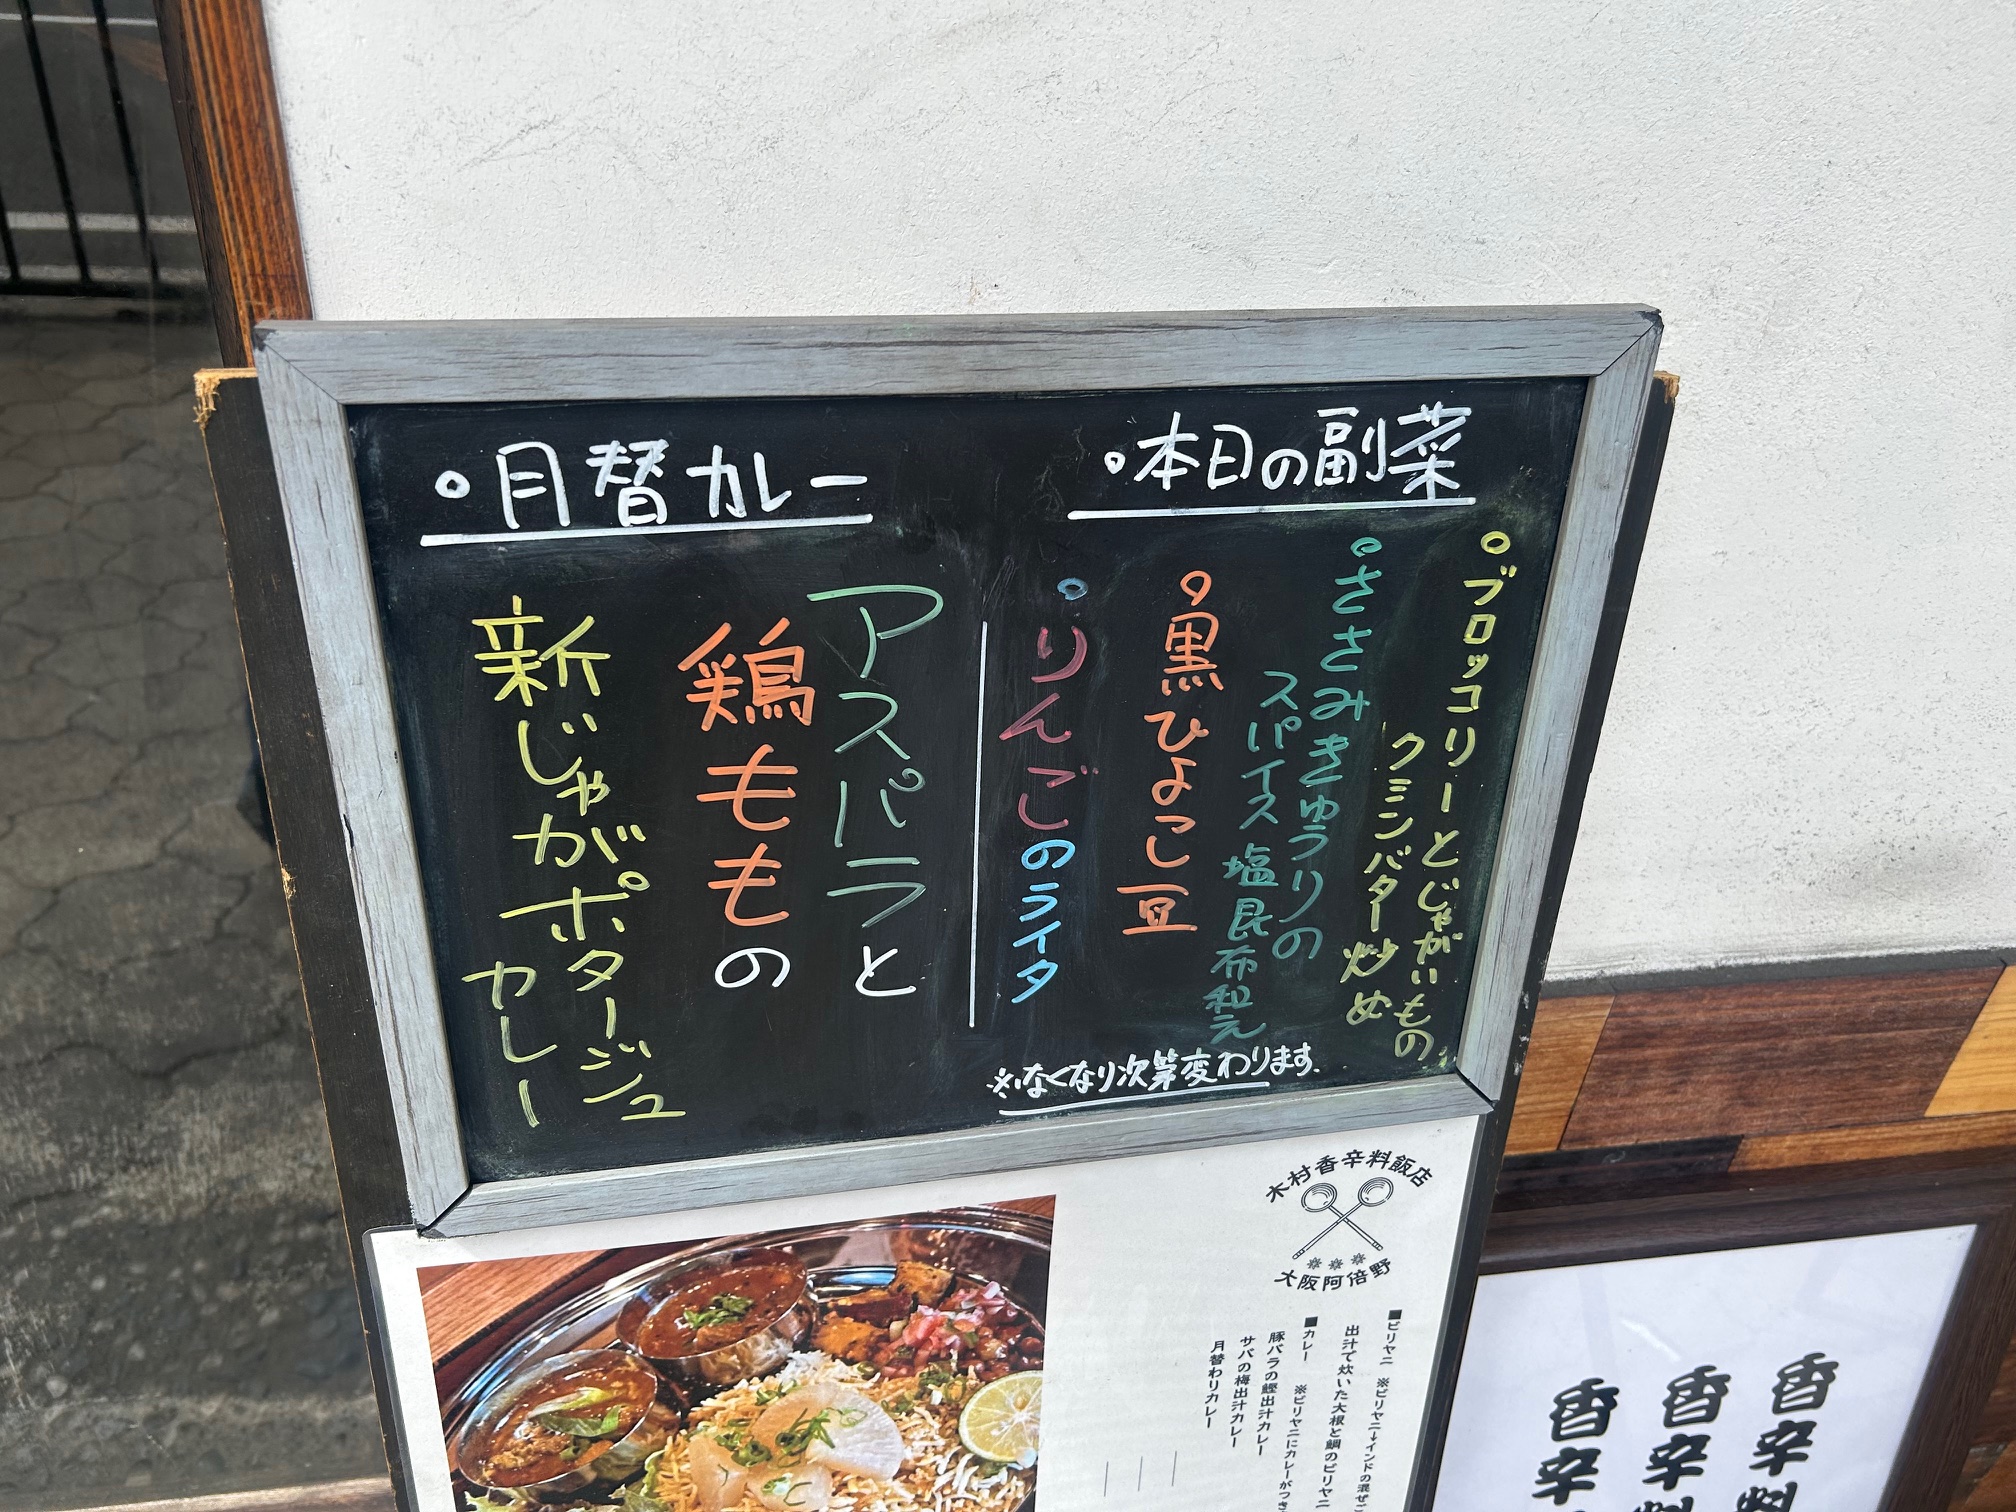 ・本日の副菜
・ブロッコリーとじゃがいもの
クミンバター炒め
・ささみきゅうりの
スパイス塩昆布和え
・黒ひよこ豆
・りんごのライタ
※なくなり次第変わります.
・月替カレー
アスパラと
鶏ももの
新じゃがポタージュ
カレー
木村香辛料飯店
大阪阿倍野
■ビリヤニ ※ビリヤニ→インドの混ぜご
出汁で炊いた大根と鯛のビリヤニ
■カレー ※ビリヤニにカレーがつき
豚バラの鰹出汁カレー
サバの梅出汁カレー
月替わりカレー
香辛料
香辛料
香辛